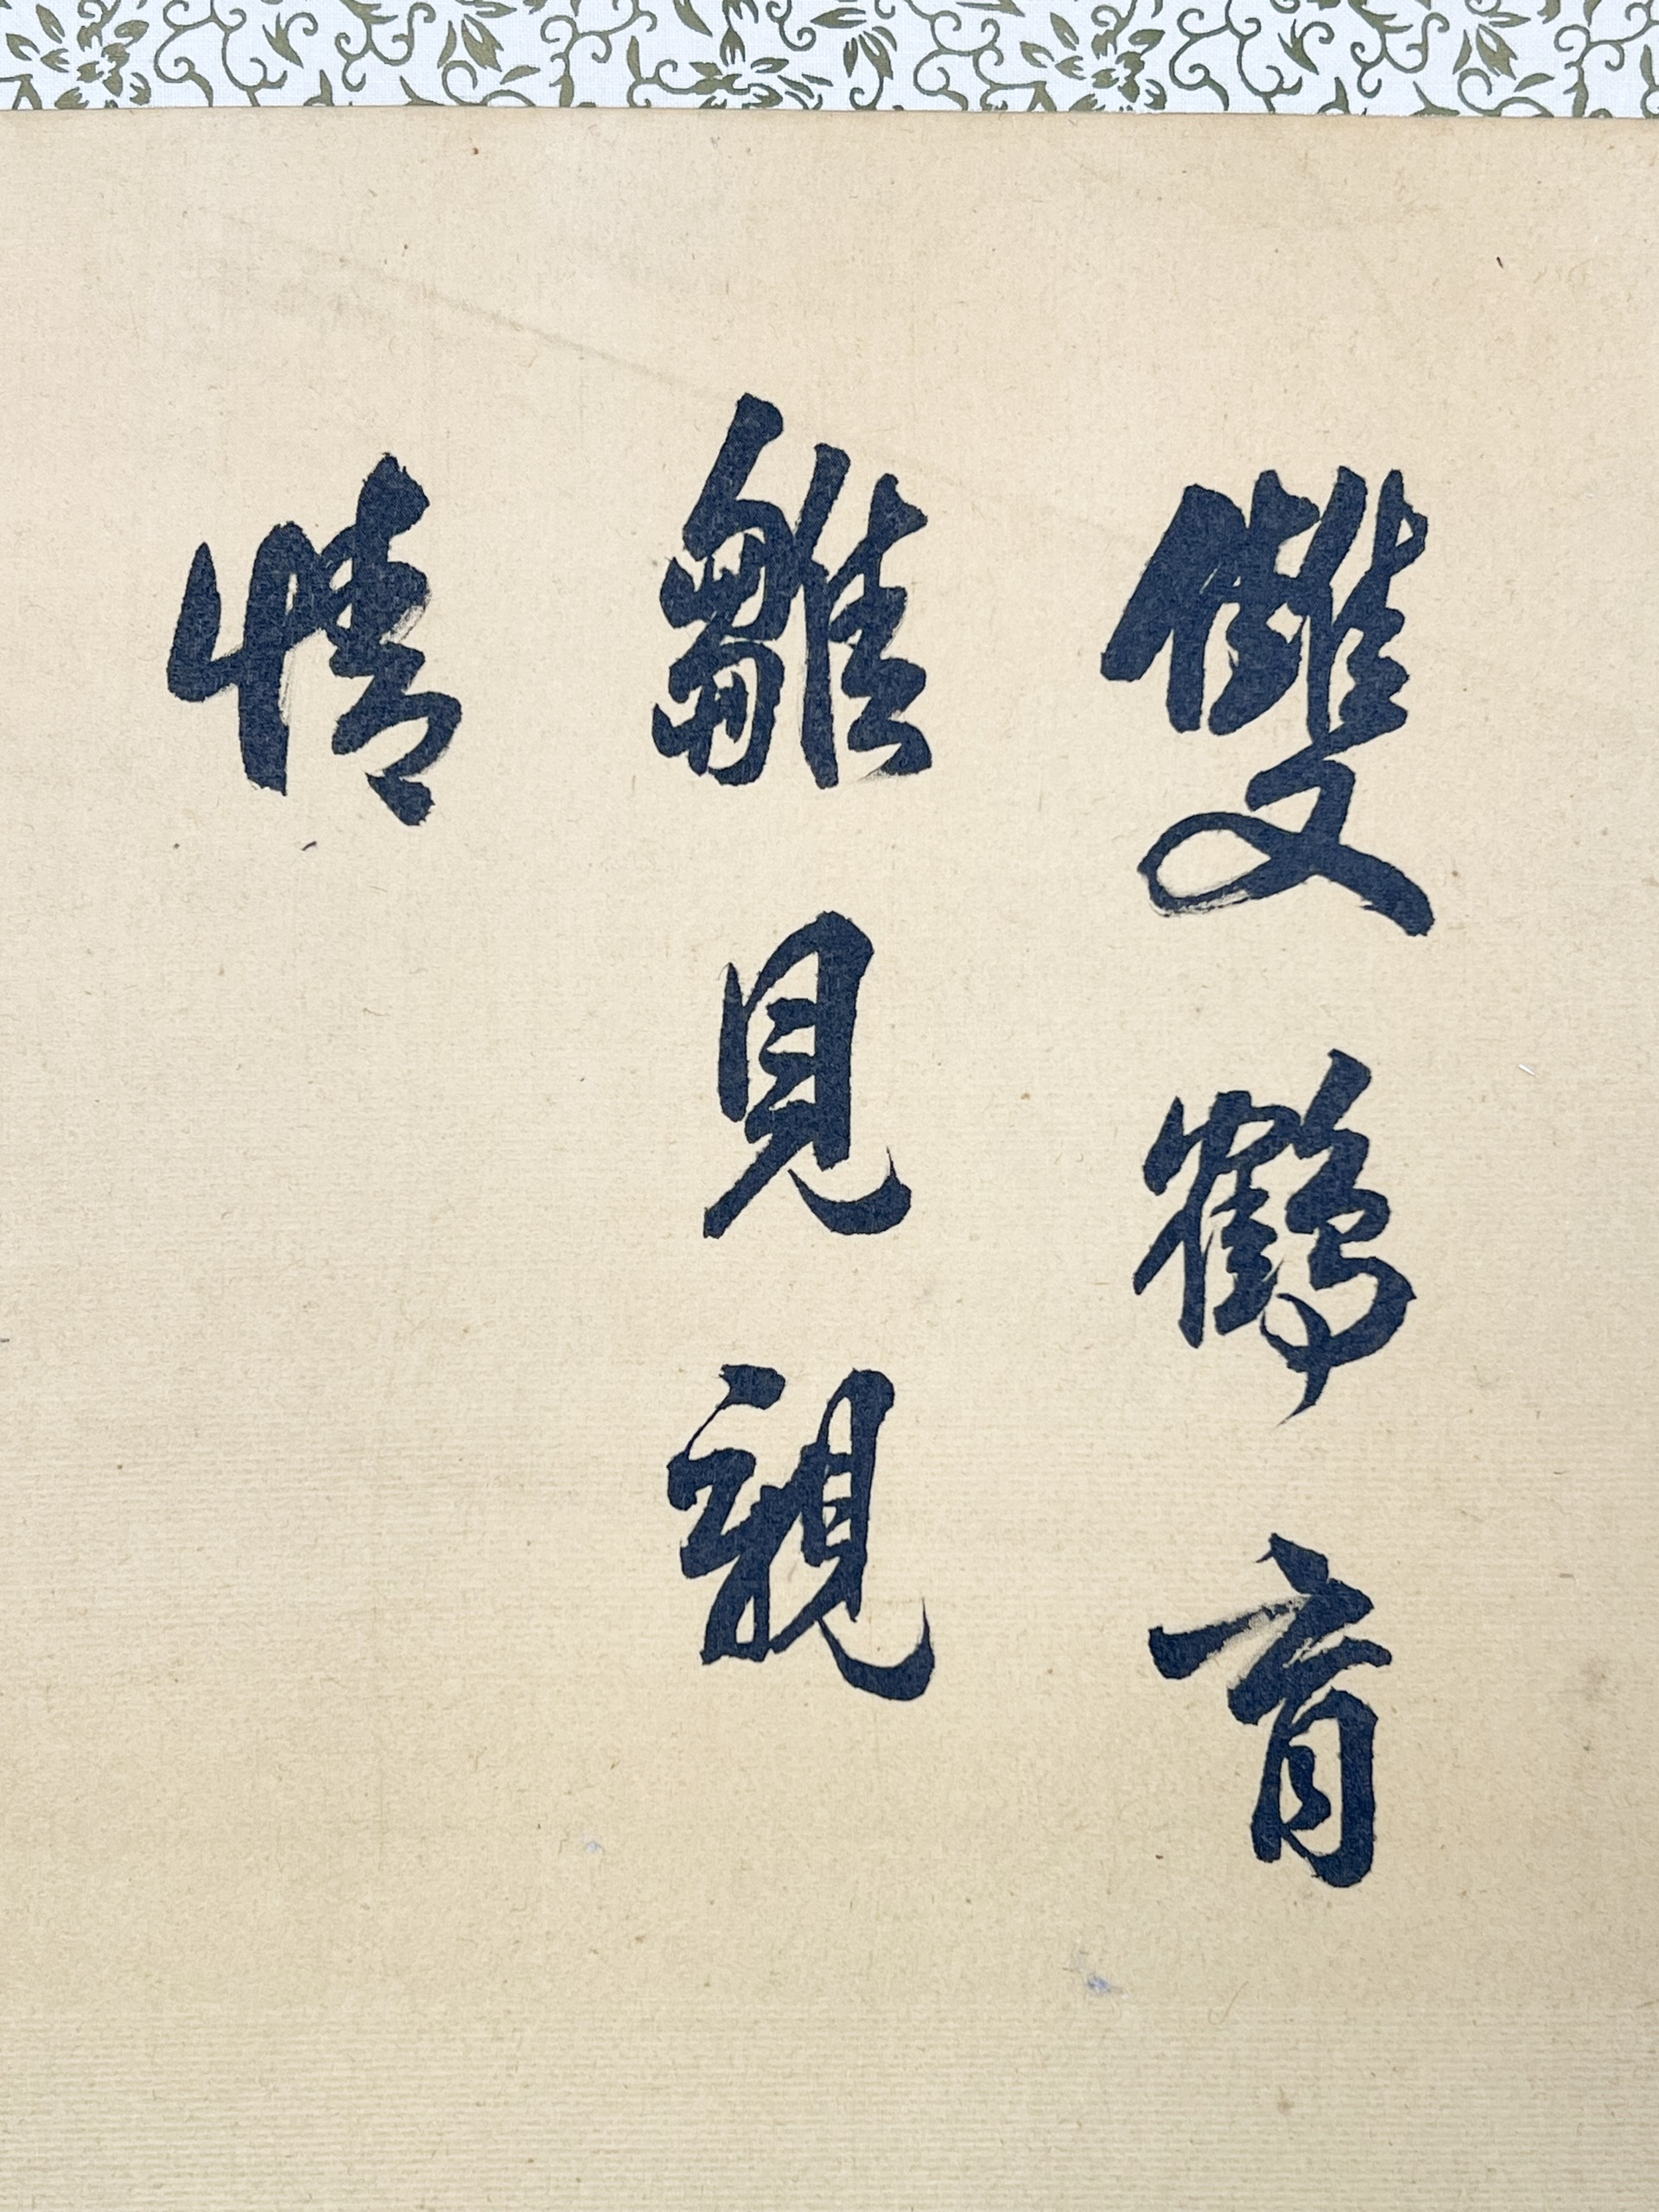 雙鶴育
雛見親
情